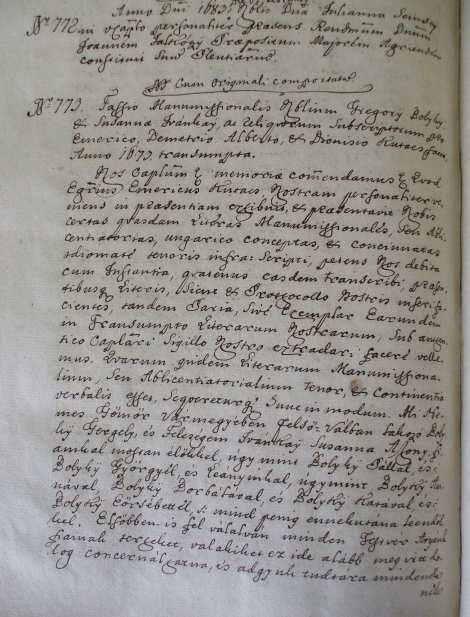 Anno Dni 1683. Nblis Dna Julianna
Nr. 772. personaliter praesens Rendmum Dnum
Joannem Praepositum Majorem Agriensem
constituit suum Plenarium
Cum Originali comportata
Nr. 773. Fassio Manumissionalis Nblium Gregory Bolyky,
& Susanna Ivánkay, ac reliquorum Subscriptorum pro
Emerico, Demetrio, Alberto, & Dionisio Kutacs, facta
Anno 1673. transumpta.
Nos Caplum & memoriae comendamus Quod
Egrius Emericus Kutacs, Nostram personaliter ve-
niens in praesentiam exhibuit, & praesentavit Nobis
certas quasdam Literas Manumissionales, Seu Abli-
centiatorias, ungarico conceptas, & concinnatas
idiomate tenoris infra Scripti, petens Nos debita
cum Instantia, quatenus easdem transcribi, praesen-
tibusq Literis, Sicut & Protocollo Nostris inseri fa-
cientes, tandem Paria, Sive Exemplar Earundem
in Transumpto Literarum Nostrarum, Sub authen-
tico Caplari Sigillo Nostro extradari facere velle-
mus. Quarum quidem Literarum Manumissiona-
lium, Seu Ablicentiatorialium tenor, & Continentia
verbalis esset, Sequereturq Sunc in modum. Mi Ne-
mes Gömör Vármegyében felső Valiban lakozó Boly-
ky Gergely, és Feleségem Ivánkay Susanna Aszony, fi-
aimkal mostan élőkkel, úgy mint Bolyky Pállal, és
Bolyky Györgyel, és Leányimkal, úgymint Bolyky An-
nával, Bolyky Borbárával, és Bolyky Katával, és
Bolyky Örsébettel, s mind penig ennekutána leendők-
kel. Elsőbben is fel vállalván minden
terheket, valakiket ez ide alább meg írt do-
log concernálna, és adgyuk tudtára mindenek-
nek